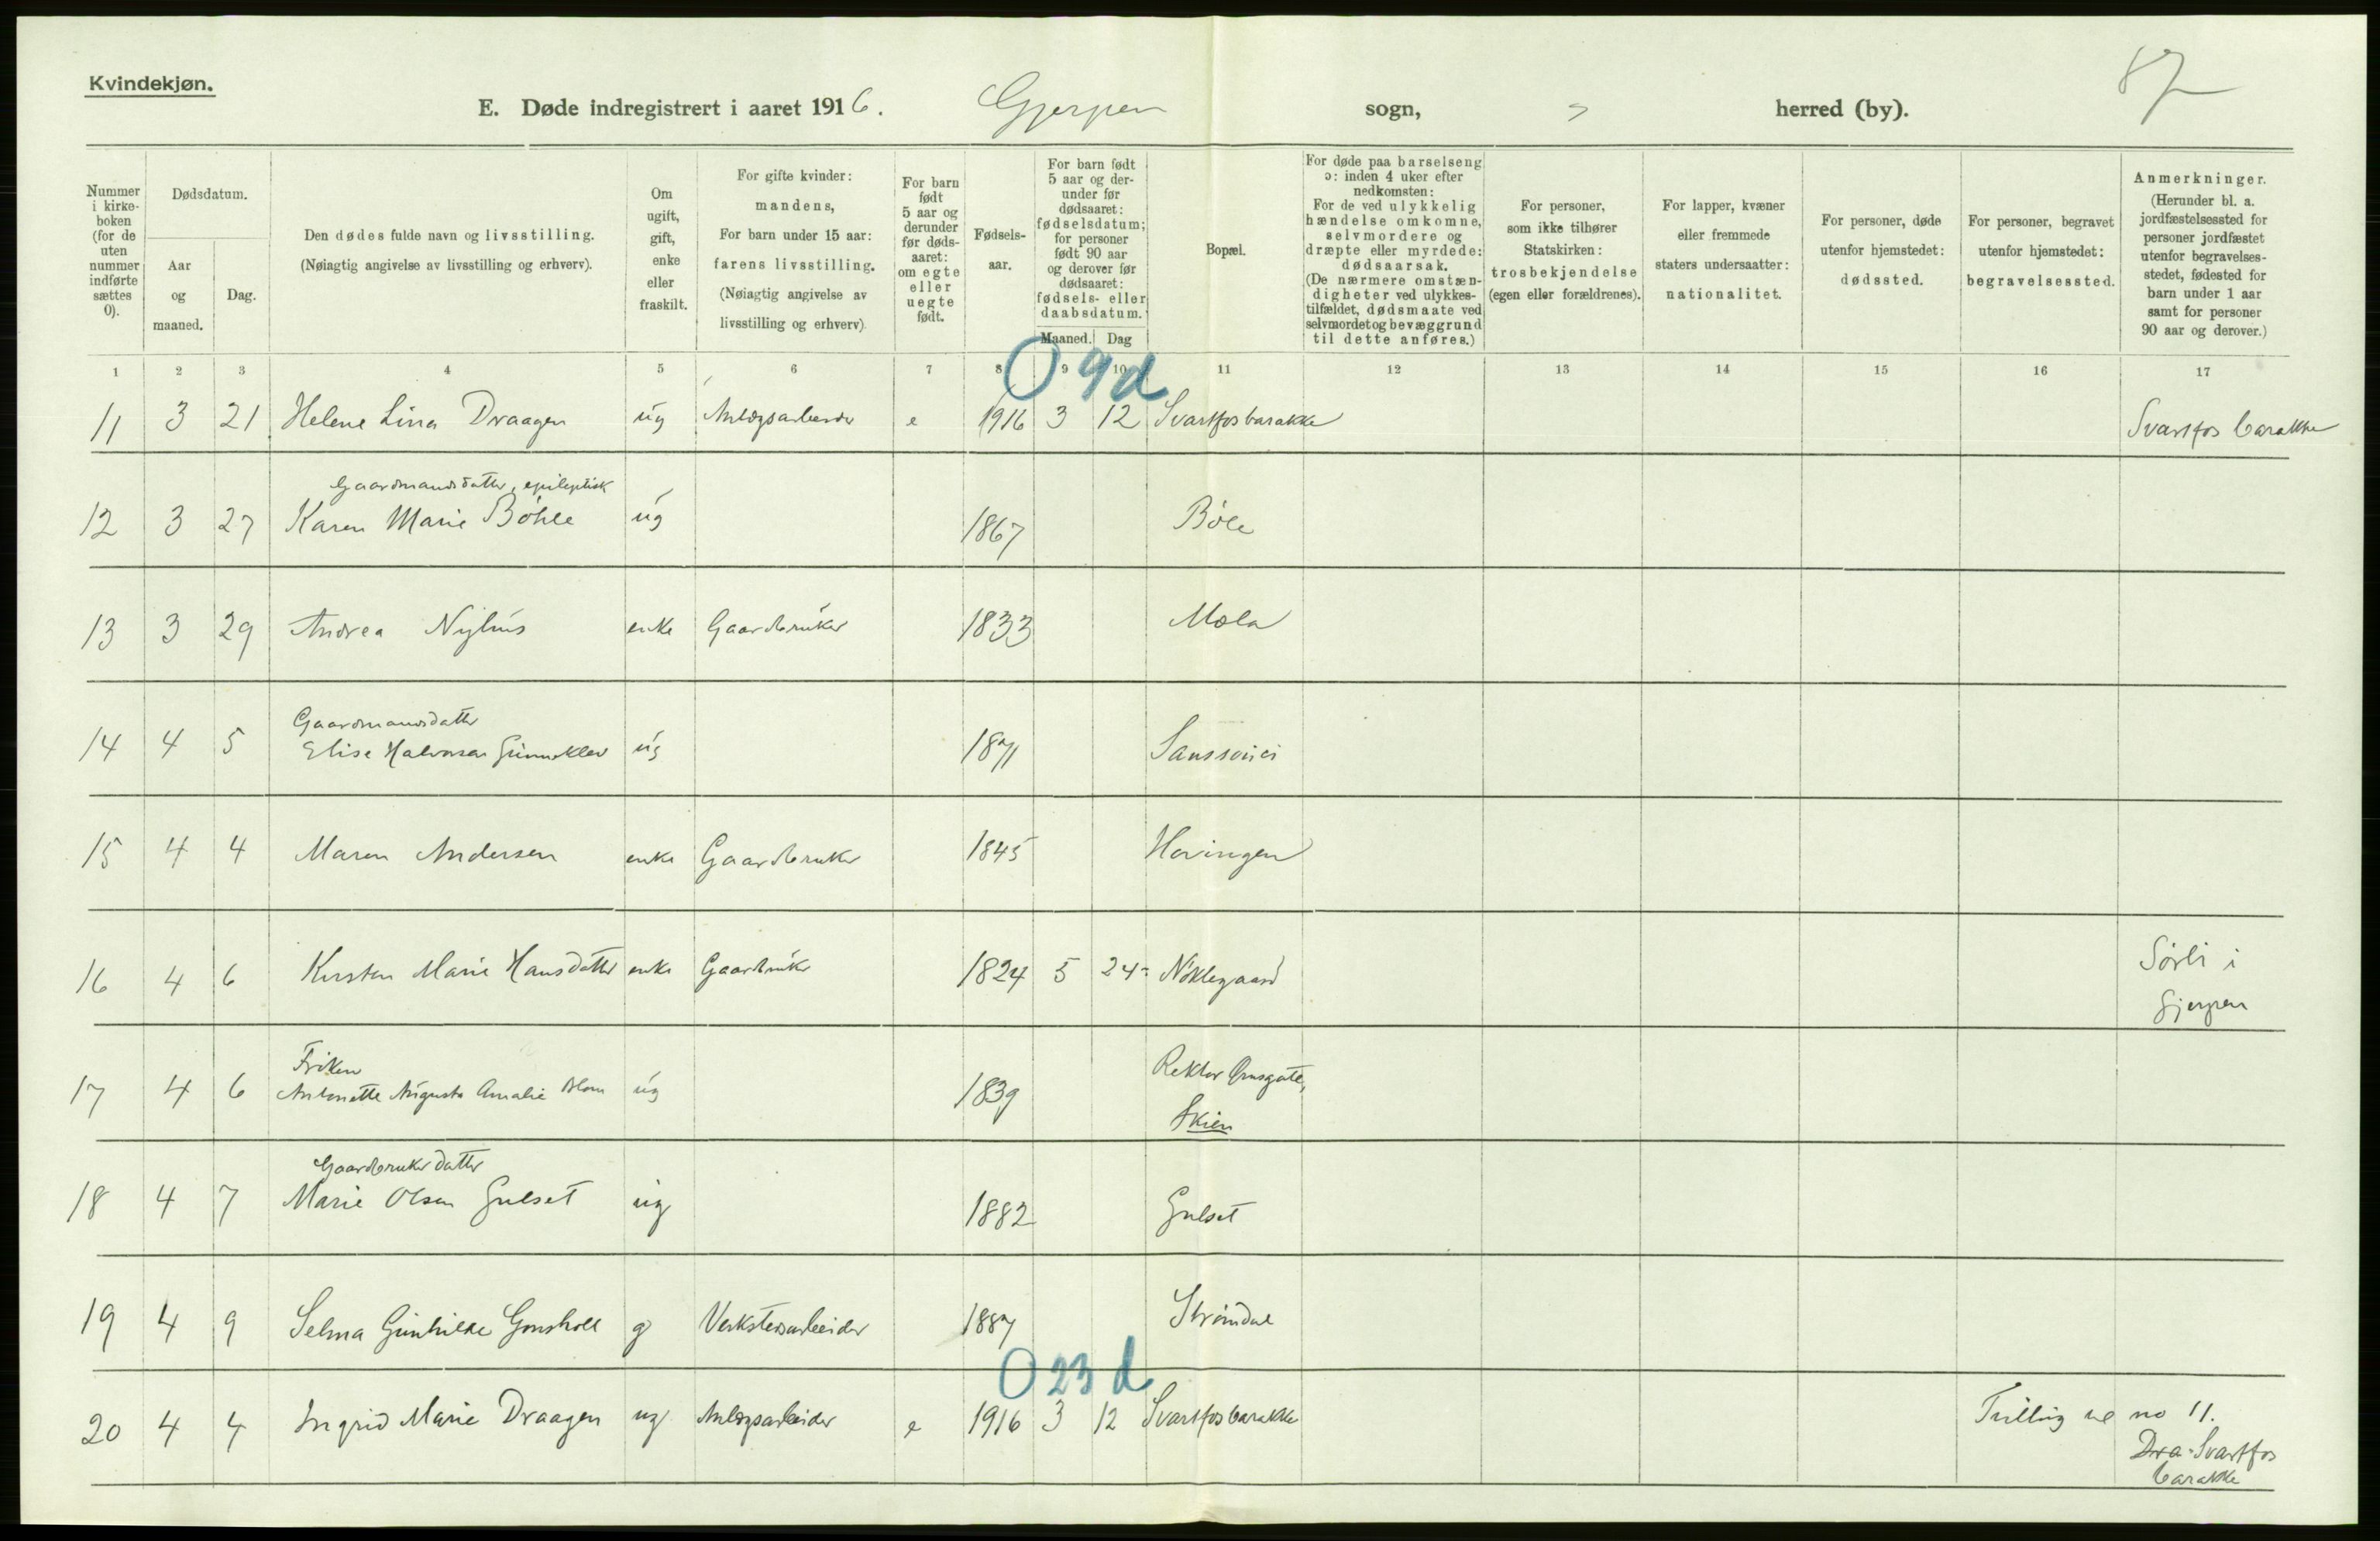 Kvindekjøn.
E. Døde indregistrert i aaret 1916. Gjerpen sogn, " herred (by).
87
Nummer i kirkeboken (for de uten nummer indførte sættes 0).
Dødsdatum.
Aar og maaned.
Dag.
Den dødes fulde navn og livsstilling.
(Nøiagtig angivelse av livsstilling og erhverv).
Om ugift, gift, enke eller fraskilt.
For gifte kvinder: mandens,
For barn under 15 aar: farens livsstilling.
(Nøiagtig angivelse av livsstilling og erhverv)
For barn født 5 aar og derunder før dødsaaret: om egte eller uegte født.
Fødselsaar.
For barn født 5 aar og derunder før dødsaaret: fødselsdatum; for personer født 90 aar og derover før dødsaaret: fødsels- eller daabsdatum.
Maaned. Dag
Bopæl.
For døde paa barselseng ɔ: inden 4 uker efter nedkomsten:
For de ved ulykkelig hændelse omkomne, selvmordere og dræpte eller myrdede: dødsaarsak.
(De nærmere omstændigheter ved ulykkestilfældet, dødsmaate ved selvmordet og bevæggrund til dette anføres.)
For personer, som ikke tilhører Statskirken: trosbekjendelse (egen eller forældrenes).
For lapper, kvæner eller fremmede staters undersaatter: nationalitet.
For personer, døde utenfor hjemstedet: dødssted.
For personer, begravet utenfor hjemstedet: begravelsessted.
Anmerkninger.
(Herunder bl. a. jordfæstelsessted for personer jordfæstet utenfor begravelsesstedet, fødested for barn under 1 aar samt for personer 90 aar og derover.)
1 2 3 4 5 6 7 8 9 10 11 12 13 14 15 16 17
0 9 d
11 3 21 Helene Lina Draagen ug Anlægsarbeider e 1916 3 12 Svartfosbarakke Svartfos barakke
Gaardmandsdatter, epileptisk
12 3 27 Karen Marie Böhle ug 1867 Böle
13 3 29 Andrea Nyhus enke Gaardbruker 1833 Mæla
Gaardmandsdatter
14 4 5 Elise Halvorsen Grinnkleiv ug 1871 Sanssouci
15 4 4 Maren Andersen enke Gaardbruker 1845 Hovingen
16 4 6 Kirsten Marie Hansdatter enke Gaardbruker 1824 5 24 Nöklegaard Sørli i
Gjerpen
Fröken
17 4 6 Antonette Augusta Amalie Blom ug 1839 Rektor Ørnsgate,
Skien
Gaardbruker datter
18 4 7 Marie Olsen Gulset ug 1882 Gulset
19 4 9 Selma Gunhilde Gonsholt g Verkstedsarbeider 1887 Strømdal
0 23 d
20 4 4 Ingrid Marie Draagen ug Anlægsarbeider e 1916 3 12 Svartfosbarakke Tvilling til no 11.
Dra-Svartfos
barakke